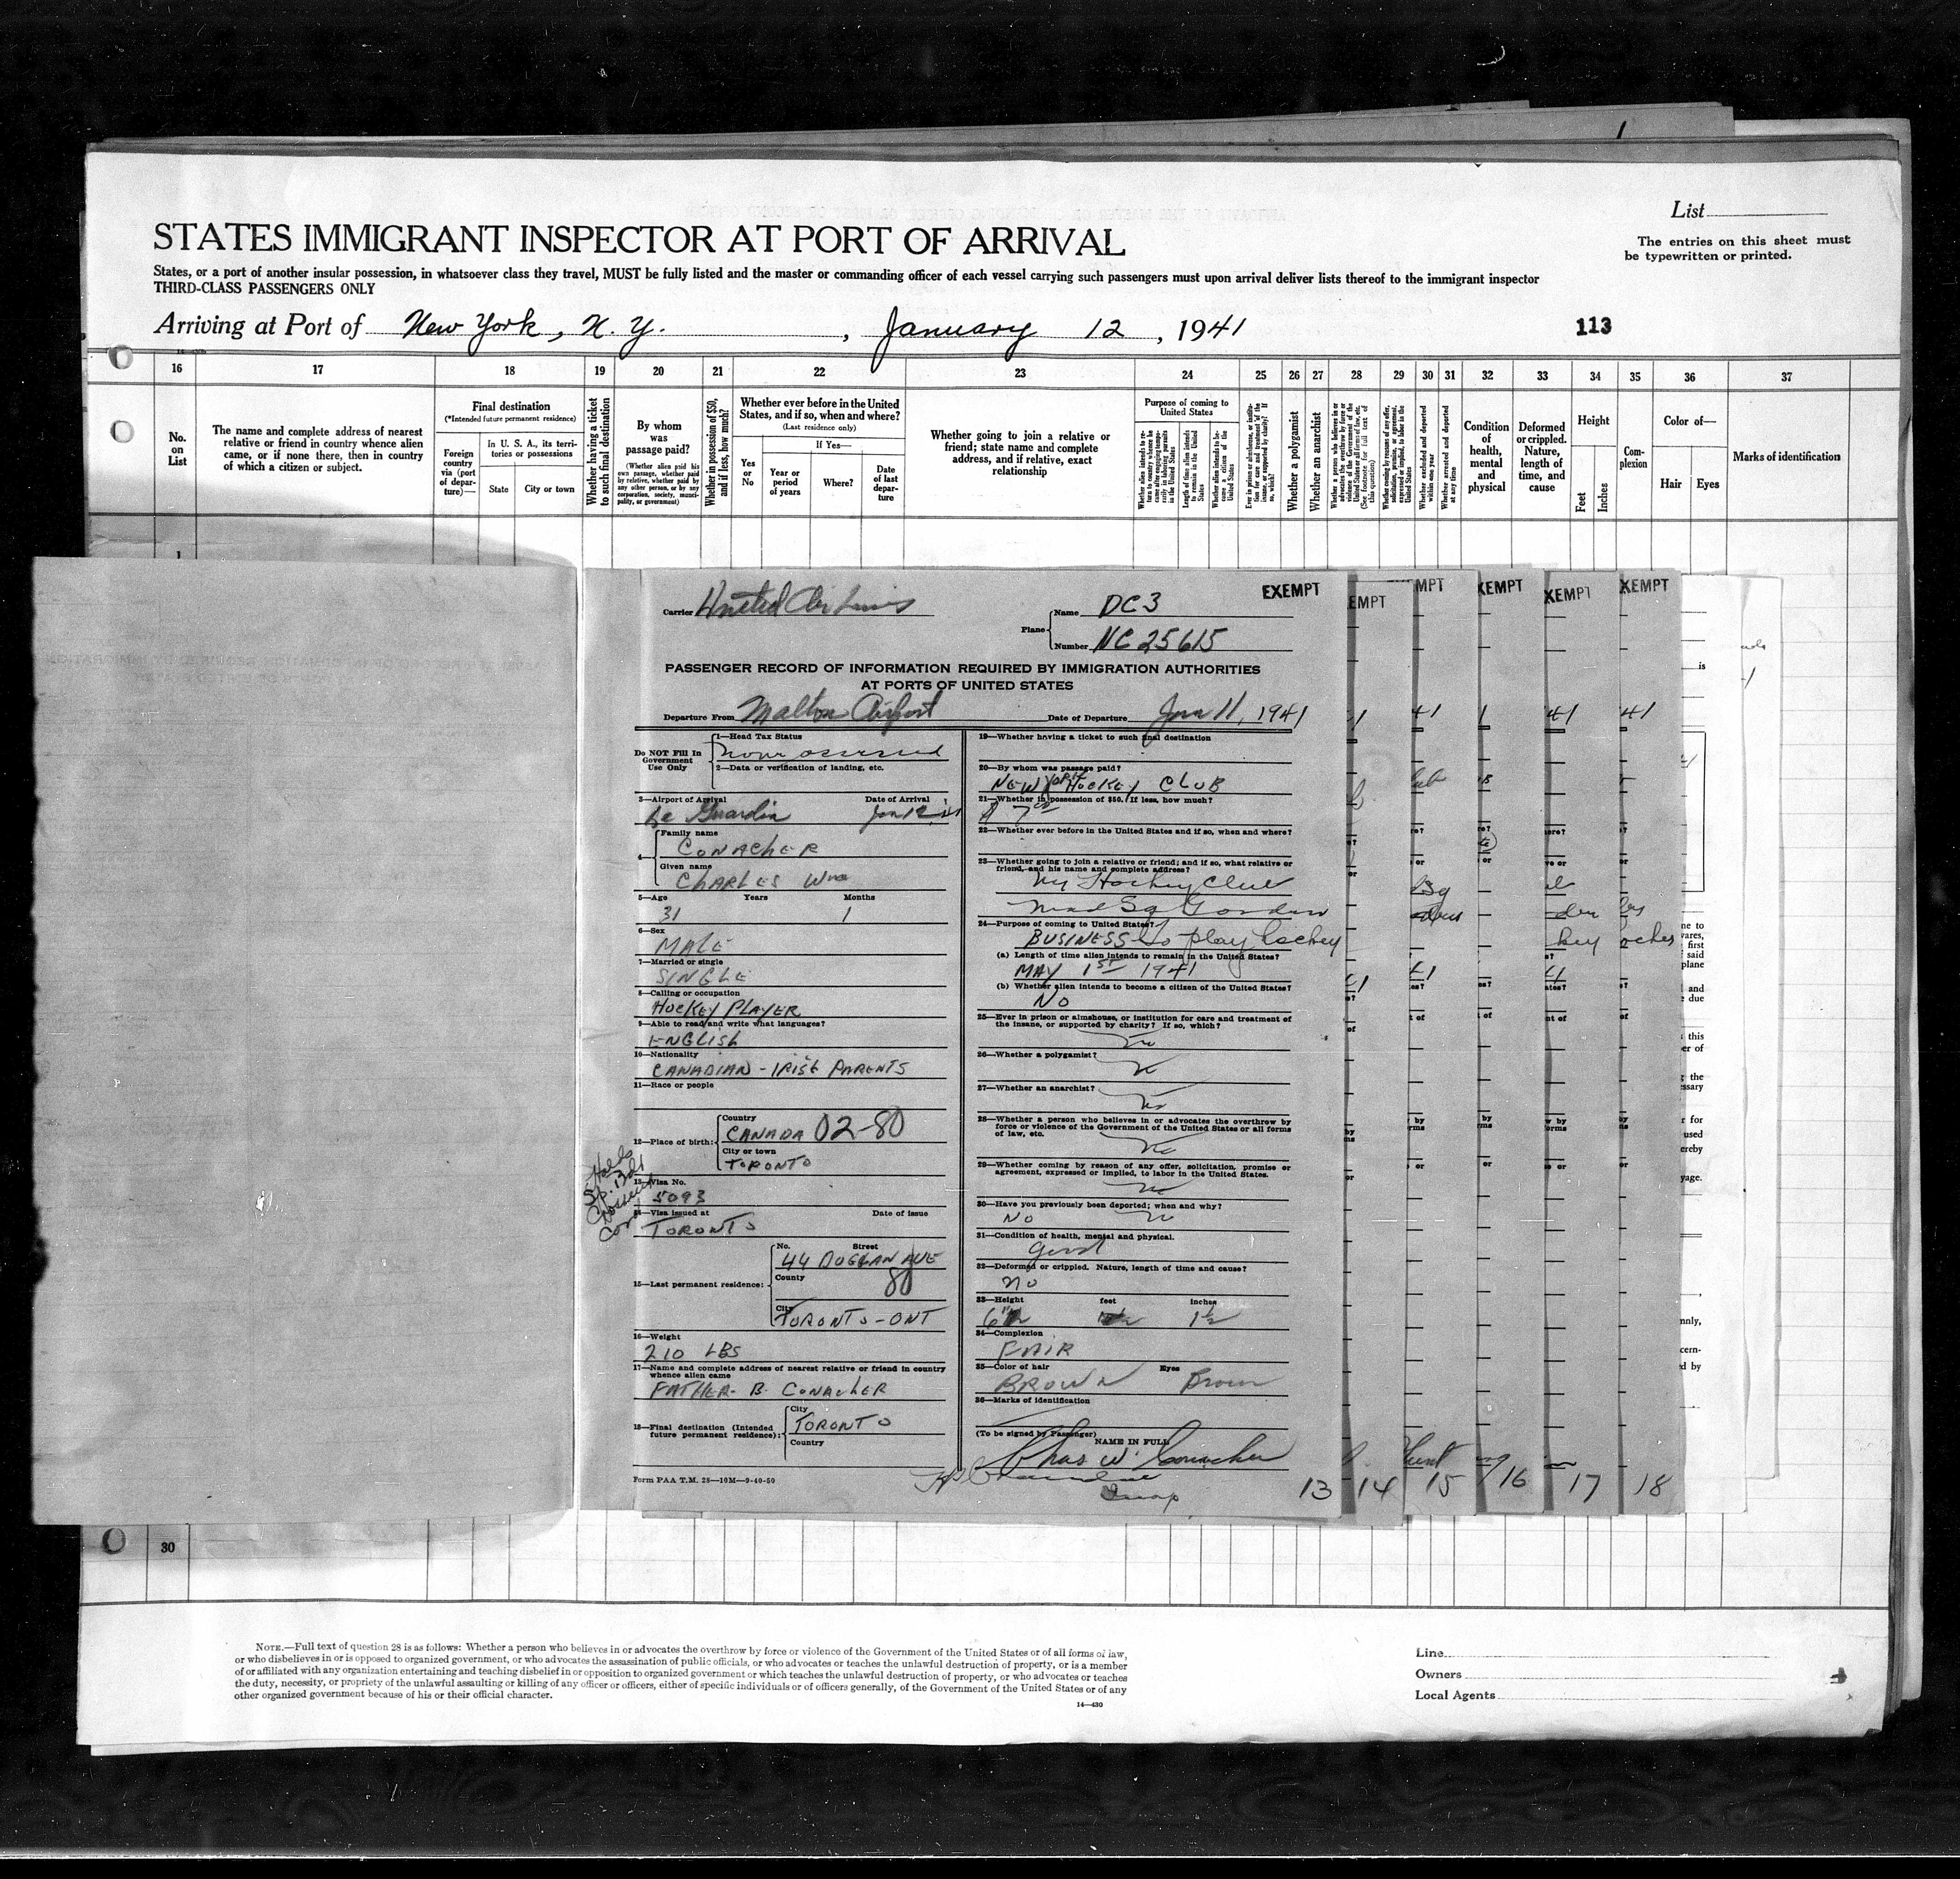 List
The entries on this sheet must
be typewritten or printed.
STATES IMMIGRANT INSPECTOR AT PORT OF ARRIVAL
States, or a port of another insular possession, in whatsoever class they travel, MUST be fully listed and the master or commanding officer of each vessel carrying such passengers must upon arrival deliver lists thereof to the immigrant inspector
THIRD-CLASS PASSENGERS ONLY
Arriving at Port of New York, N. Y. , January 12 , 1941
113
16 17 18 19 20 21 22 23 24 25 26 27 28 29 30 31 32 33 34 35 36 37
No. on List
The name and complete address of nearest
relative or friend in country whence alien
came, or if none there, then in country
of which a citizen or subject.
Final destination
(*Intended future permanent residence)
Foreign country via (port of departure)—
In U. S. A., its territories or possessions
State
City or town
Whether having a ticket to such final destination
By whom was passage paid?
(Whether alien paid his own passage, whether paid by relative, whether paid by any other person, or by any corporation, society, municipality, or government)
Whether in possession of $50, and if less, how much?
Whether ever before in the United
States, and if so, when and where?
(Last residence only)
Yes or No
If Yes—
Year or period of years
Where?
Date of last departure
Whether going to join a relative or
friend; state name and complete
address, and if relative, exact
relationship
Purpose of coming to United States
Whether a polygamist
Whether an anarchist
Whether excluded and deported within one year
Whether arrested and deported at any time
Condition of health, mental and physical
Deformed or crippled. Nature, length of time, and cause
Height
Feet
Inches
Complexion
Color of—
Hair
Eyes
Marks of identification
1
Carrier United Air Lines
EXEMPT
Plane
Name DC3
Number NC 25615
PASSENGER RECORD OF INFORMATION REQUIRED BY IMMIGRATION AUTHORITIES
AT PORTS OF UNITED STATES
Departure From Malton Airport
Date of Departure Jan 11, 1941
Do NOT Fill In
Government
Use Only
1—Head Tax Status
none assessed
2—Data or verification of landing, etc.
3—Airport of Arrival Date of Arrival
La Guardia Jan 12, 41
4—
Family name
CONACHER
Given name
CHARLES Wm
5—Age Years Months
31 1
6—Sex
MALE
7—Married or single
SINGLE
8—Calling or occupation
HOCKEY PLAYER
9—Able to read and write what languages?
ENGLISH
10—Nationality
CANADIAN - IRISH PARENTS
11—Race or people
12—Place of birth:
Country
CANADA 02-80
City or town
TORONTO
13—Visa No.
5093
14—Visa issued at Date of issue
TORONTO
15—Last permanent residence:
No. Street
44 DUGGAN AVE
County
80
City
TORONTO - ONT
16—Weight
210 LBS
17—Name and complete address of nearest relative or friend in country
whence alien came
FATHER - B. CONACHER
18—Final destination (Intended
future permanent residence):
City
TORONTO
Country
Form PAA T.M. 28—10M—9-40-50
19—Whether having a ticket to such final destination
20—By whom was passage paid?
NEW YORK HOCKEY CLUB
21—Whether in possession of $50. If less, how much?
22—Whether ever before in the United States and if so, when and where?
23—Whether going to join a relative or friend; and if so, what relative or
friend, and his name and complete address?
NY Hockey Club
Mad Sq Garden
24—Purpose of coming to United States?
BUSINESS to play hockey
(a) Length of time alien intends to remain in the United States?
MAY 1ST 1941
(b) Whether alien intends to become a citizen of the United States?
NO
25—Ever in prison or almshouse, or institution for care and treatment of
the insane, or supported by charity? If so, which?
no
26—Whether a polygamist?
no
27—Whether an anarchist?
no
28—Whether a person who believes in or advocates the overthrow by
force or violence of the Government of the United States or all forms
of law, etc.
no
29—Whether coming by reason of any offer, solicitation, promise or
agreement, expressed or implied, to labor in the United States.
no
30—Have you previously been deported; when and why?
NO no
31—Condition of health, mental and physical.
good
32—Deformed or crippled. Nature, length of time and cause?
no
33—Height feet inches
6 1½
34—Complexion
FAIR
35—Color of hair Eyes
BROWN Brown
36—Marks of identification
(To be signed by Passenger)
NAME IN FULL
Chas W. Conacher
13 14 15 16 17 18
30
NOTE.—Full text of question 28 is as follows: Whether a person who believes in or advocates the overthrow by force or violence of the Government of the United States or of all forms of law,
or who disbelieves in or is opposed to organized government, or who advocates the assassination of public officials, or who advocates or teaches the unlawful destruction of property, or is a member
of or affiliated with any organization entertaining and teaching disbelief in or opposition to organized government or which teaches the unlawful destruction of property, or who advocates or teaches
the duty, necessity, or propriety of the unlawful assaulting or killing of any officer or officers, either of specific individuals or of officers generally, of the Government of the United States or of any
other organized government because of his or their official character.
14—430
Line
Owners
Local Agents